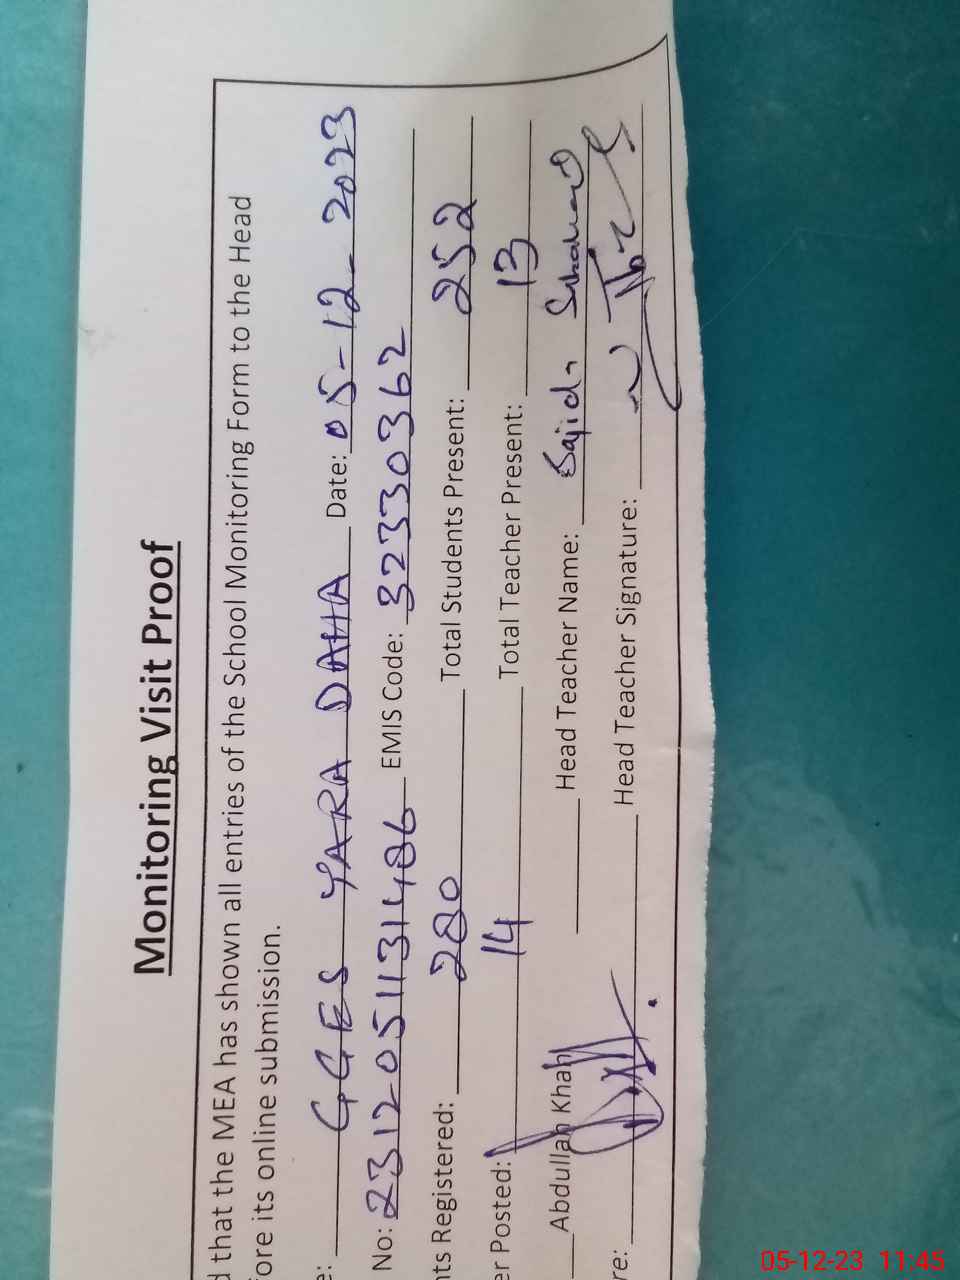 Monitoring Visit Proof
d that the MEA has shown all entries of the School Monitoring Form to the Head
fore its online submission.
e: GGES YARA DAHA Date: 05-12-2023
No: 2312051131486 EMIS Code: 32330362
nts Registered: 280 Total Students Present: 252
er Posted: 14 Total Teacher Present: 13
Abdullah Khan Head Teacher Name: Sajida
re: Head Teacher Signature:
05-12-23 11:45